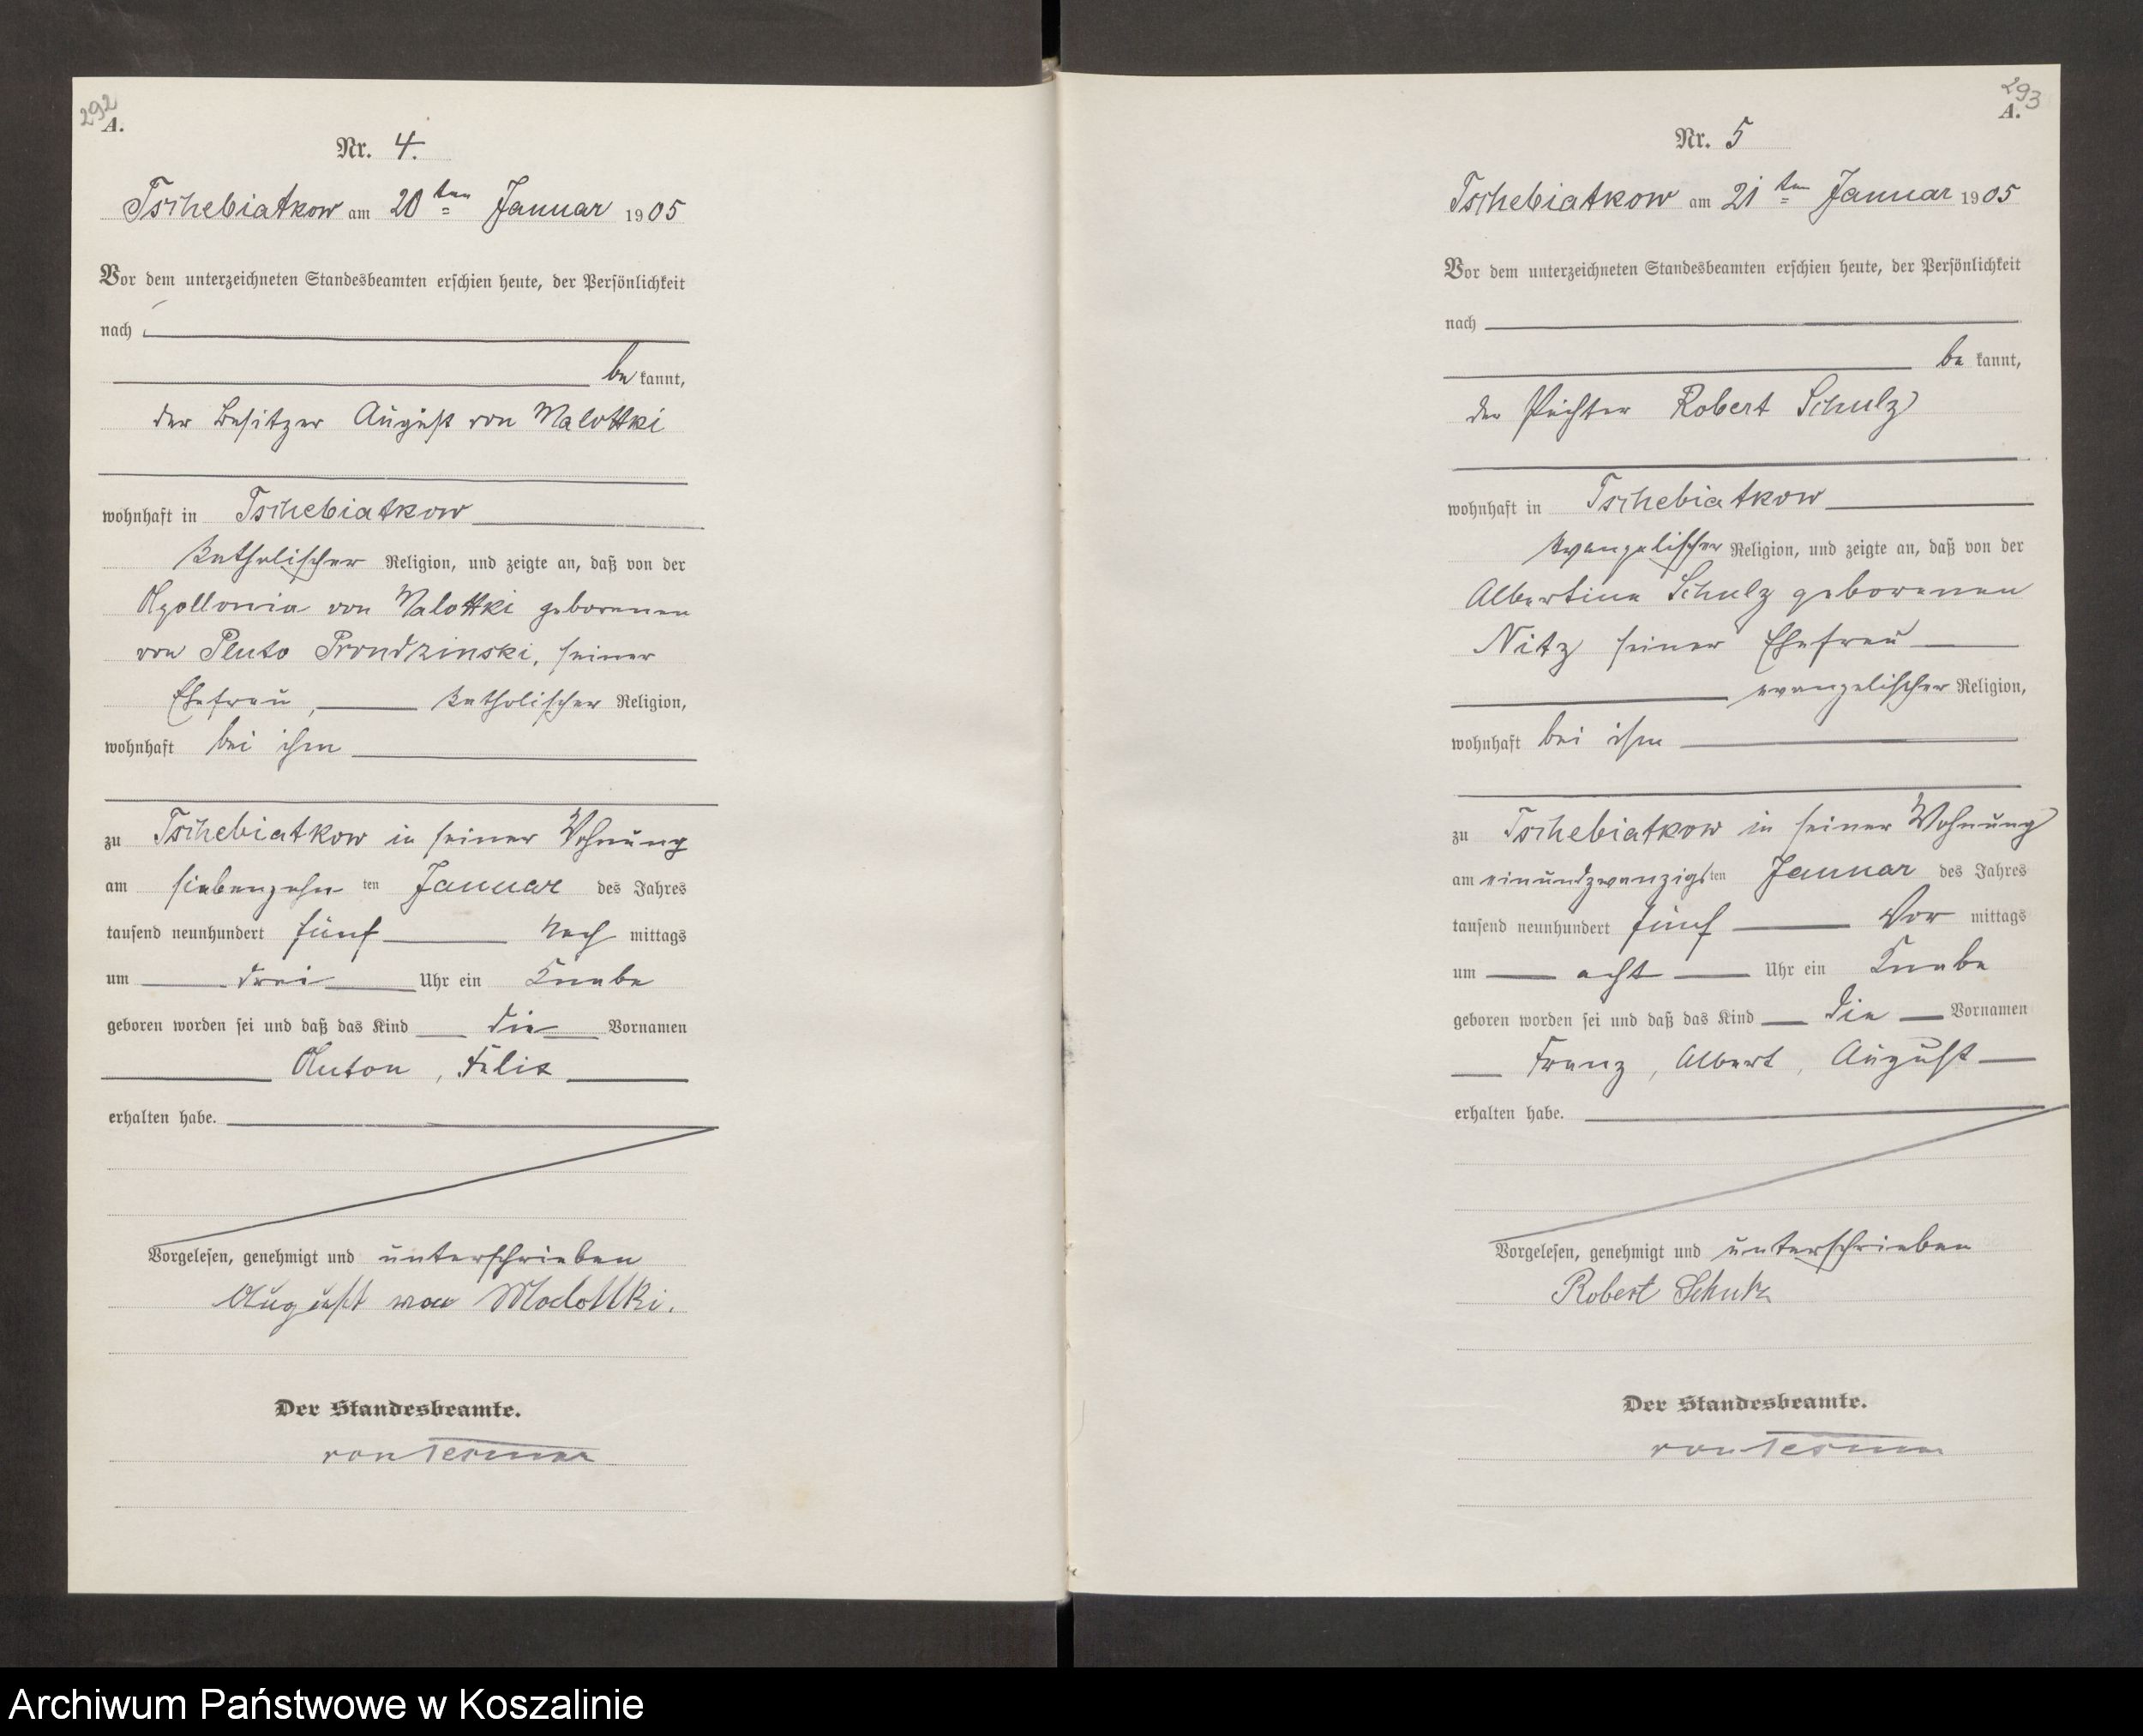 292
A.
Nr. 4.
Tschebiatkow am 20ten Januar 1905
Vor dem unterzeichneten Standesbeamten erschien heute, der Persönlichkeit
nach
be kannt,
der Besitzer August von Malottki
wohnhaft in Tschebiatkow
katholischer Religion, und zeigte an, daß von der
Apollonia von Malottki geborenen
von Pluto Prondzinski, seiner
Ehefrau, katholischer Religion,
wohnhaft bei ihm
zu Tschebiatkow in seiner Wohnung
am siebenzehn ten Januar des Jahres
tausend neunhundert fünf Nach mittags
um drei Uhr ein Knabe
geboren worden sei und daß das Kind die Vornamen
Anton, Felix
erhalten habe.
Vorgelesen, genehmigt und unterschrieben
August von Malottki.
Der Standesbeamte.
von
293
A.
Nr. 5
Tschebiatkow am 21ten Januar 1905
Vor dem unterzeichneten Standesbeamten erschien heute, der Persönlichkeit
nach
be kannt,
der Pächter Robert Schulz
wohnhaft in Tschebiatkow
evangelischer Religion, und zeigte an, daß von der
Albertine Schulz geborenen
Nitz seiner Ehefrau
evangelischer Religion,
wohnhaft bei ihm
zu Tschebiatkow in seiner Wohnung
am einundzwanzigsten Januar des Jahres
tausend neunhundert fünf Vor mittags
um acht Uhr ein Knabe
geboren worden sei und daß das Kind die Vornamen
Franz, Albert, August
erhalten habe.
Vorgelesen, genehmigt und unterschrieben
Robert Schulz
Der Standesbeamte.
von
Archiwum Państwowe w Koszalinie